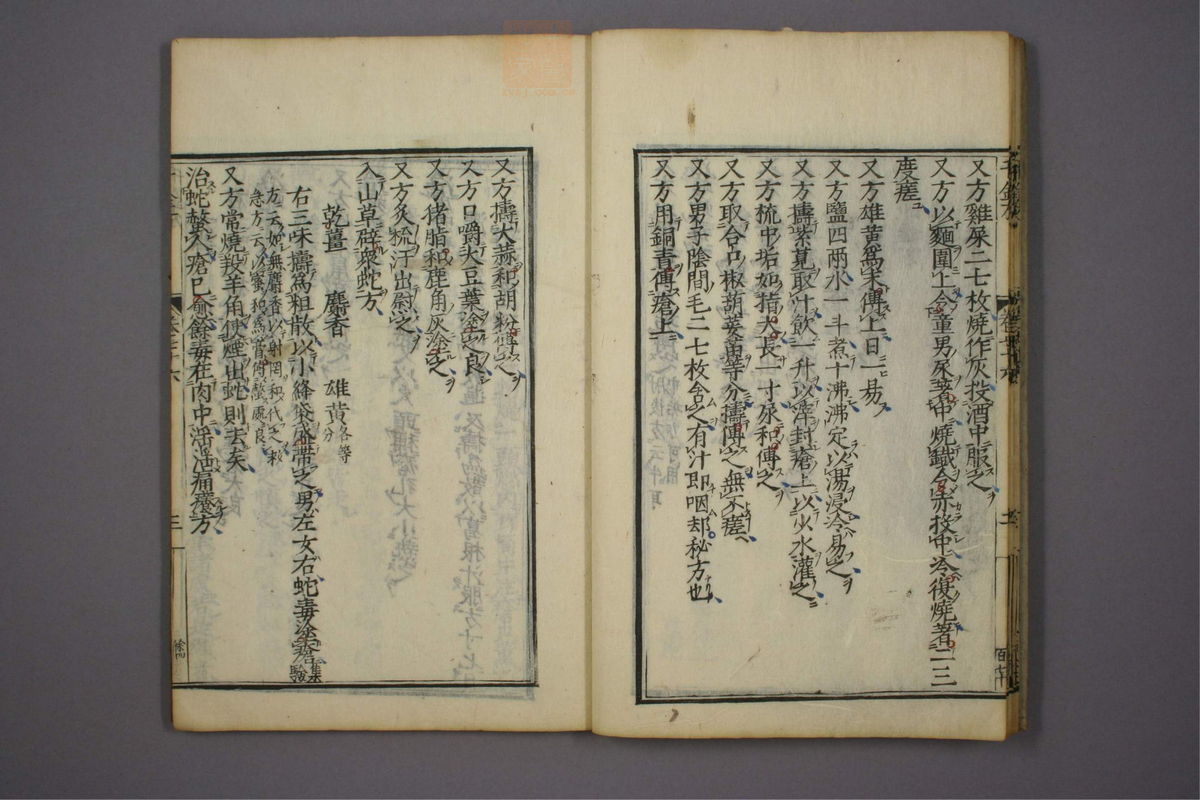 又方雞屎二七枚燒作灰投酒中服之
又方以麵圍上令童男尿著中燒鐵令赤投中冷復燒著二三
度瘥
又方雄黃爲末傅上日一易
又方鹽四兩水一斗煮十沸沸定以湯浸冷易之
又方擣紫莧取汁飲一升以滓封瘡上以少水灌之
又方梳中垢如指大長一寸尿和傅之
又方取合口椒葫荽苗等分擣傅之無不瘥
又方男子陰間毛二七枚含之有汁即咽却秘方也
又方用銅青傅瘡上
又方擣大蒜和胡粉傅之
又方口嚼大豆葉塗之良
又方猪脂和鹿角灰塗之
又方炙梳汗出熨之
入山草辟衆蛇方
乾薑 麝香 雄黃各等分
右三味擣爲粗散以小絳袋盛帶之男左女右蛇毒塗瘡集驗
方云如無麝香以射罔和代之救
急方云以蜜和爲膏傅螫處良
又方常燒羖羊角使煙出蛇則去矣
治蛇螫人瘡已愈餘毒在肉中淫淫痛癢方